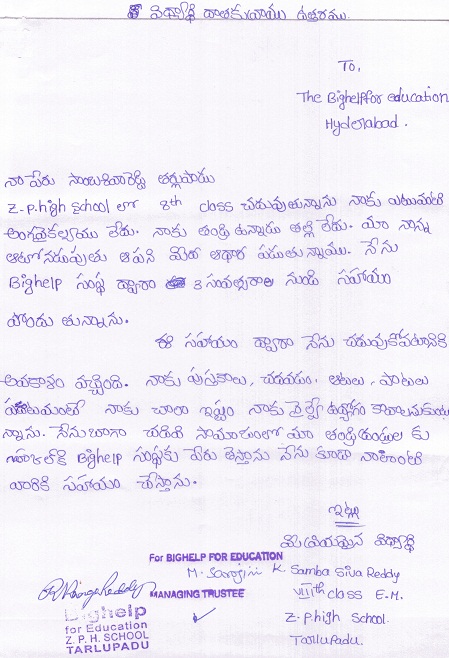 విద్యార్థి దాతకువ్రాయు ఉత్తరము.
To,
The Bighelpfor education
Hyderabad.
నా పేరు సాంబశివారెడ్డి తర్లుపాడు
Z-P.high school లో 8th class చదువుతున్నాను నాకు ఎటువంటి
అంగవైకల్యము లేదు. నాకు తండ్రి ఉన్నాడు తల్లి లేదు. మా నాన్న
ఆటోనడుపుతు ఆపని మీద ఆధార పడుతున్నాము. నేను
Bighelp సంస్థ ద్వారా 3 సంవత్సరాల నుండి సహాయం
పొందు తున్నాను.
ఈ సహాయం ద్వారా నేను చదువుకోవటానికి
అవకాశం వచ్చింది. నాకు పుస్తకాలు, చదవడం, ఆటలు, పాటలు
నాకు చాలా ఇష్టం నాకు రైల్వే ఉద్యోగం కావాలనుకుంటు
న్నాను. నేనుబాగా చదివి సామాజంలో మా తండ్రి కు
Bighelp సంస్థకు పేరు తెస్తాను నేను కూడా నాలాంటి
వారికి సహాయం చేస్తాను.
ఇట్లు
మీ ప్రియమైన విద్యార్థి
For BIGHELP FOR EDUCATION
M. Sarojini K. Samba Siva Reddy
MANAGING TRUSTEE
VIIIth class E.M.
Z.P.high School.
Tarlupadu.
Bighelp
for Education
Z. P. H. SCHOOL
TARLUPADU